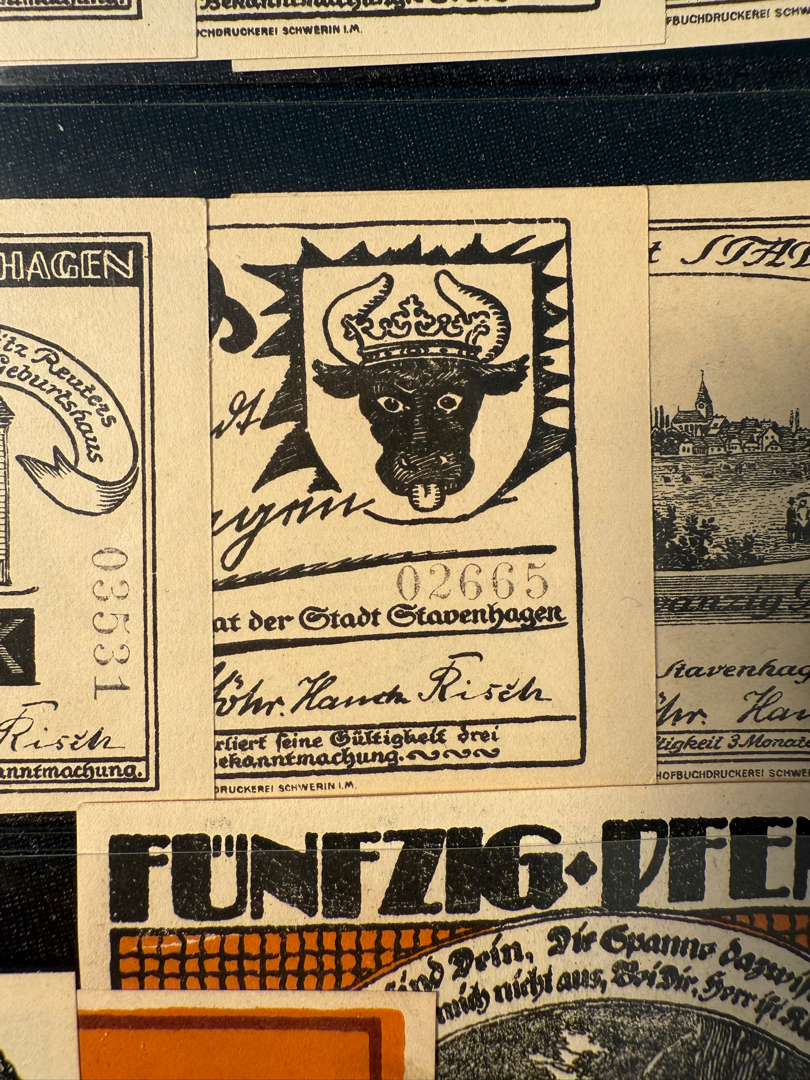 Bekanntmachung.
HOFBUCHDRUCKEREI SCHWERIN I.M.
FBUCHDRUCKEREI SCHW
HAGEN
itz Reuters
Geburtshaus
03531
K
Risch
anntmachung.
dt
agen
02665
at der Stadt Stavenhagen
Röhr. Hauch Risch
rliert seine Gültigkeit drei
ekanntmachung.
DRUCKEREI SCHWERIN I.M.
t STAD
wanzig
Stavenhag
hr. Hau
tigkeit 3 Monat
HOFBUCHDRUCKEREI SCHWE
FÜNFZIG PFE
ind Dein, Die Spanne dazwi
mich nicht aus, Bei Dir, Herr ist